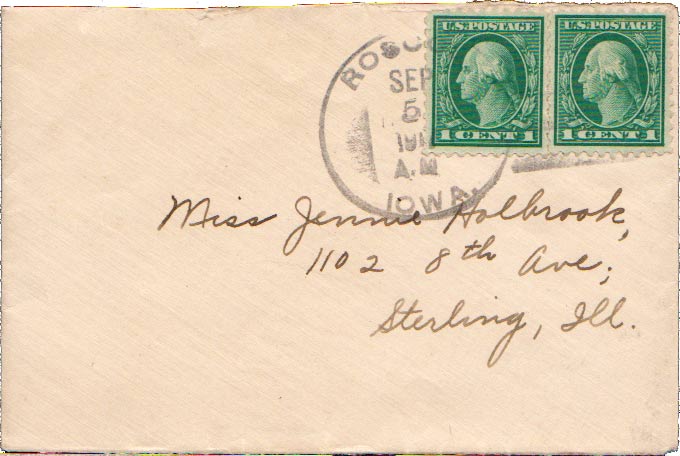 ROSCO
SEP
5
191
A.M
IOWA.
U.S. POSTAGE
1 CENT 1
U.S. POSTAGE
1 CENT 1
Miss Jennie Holbrook,
1102 8th Ave.,
Sterling, Ill.